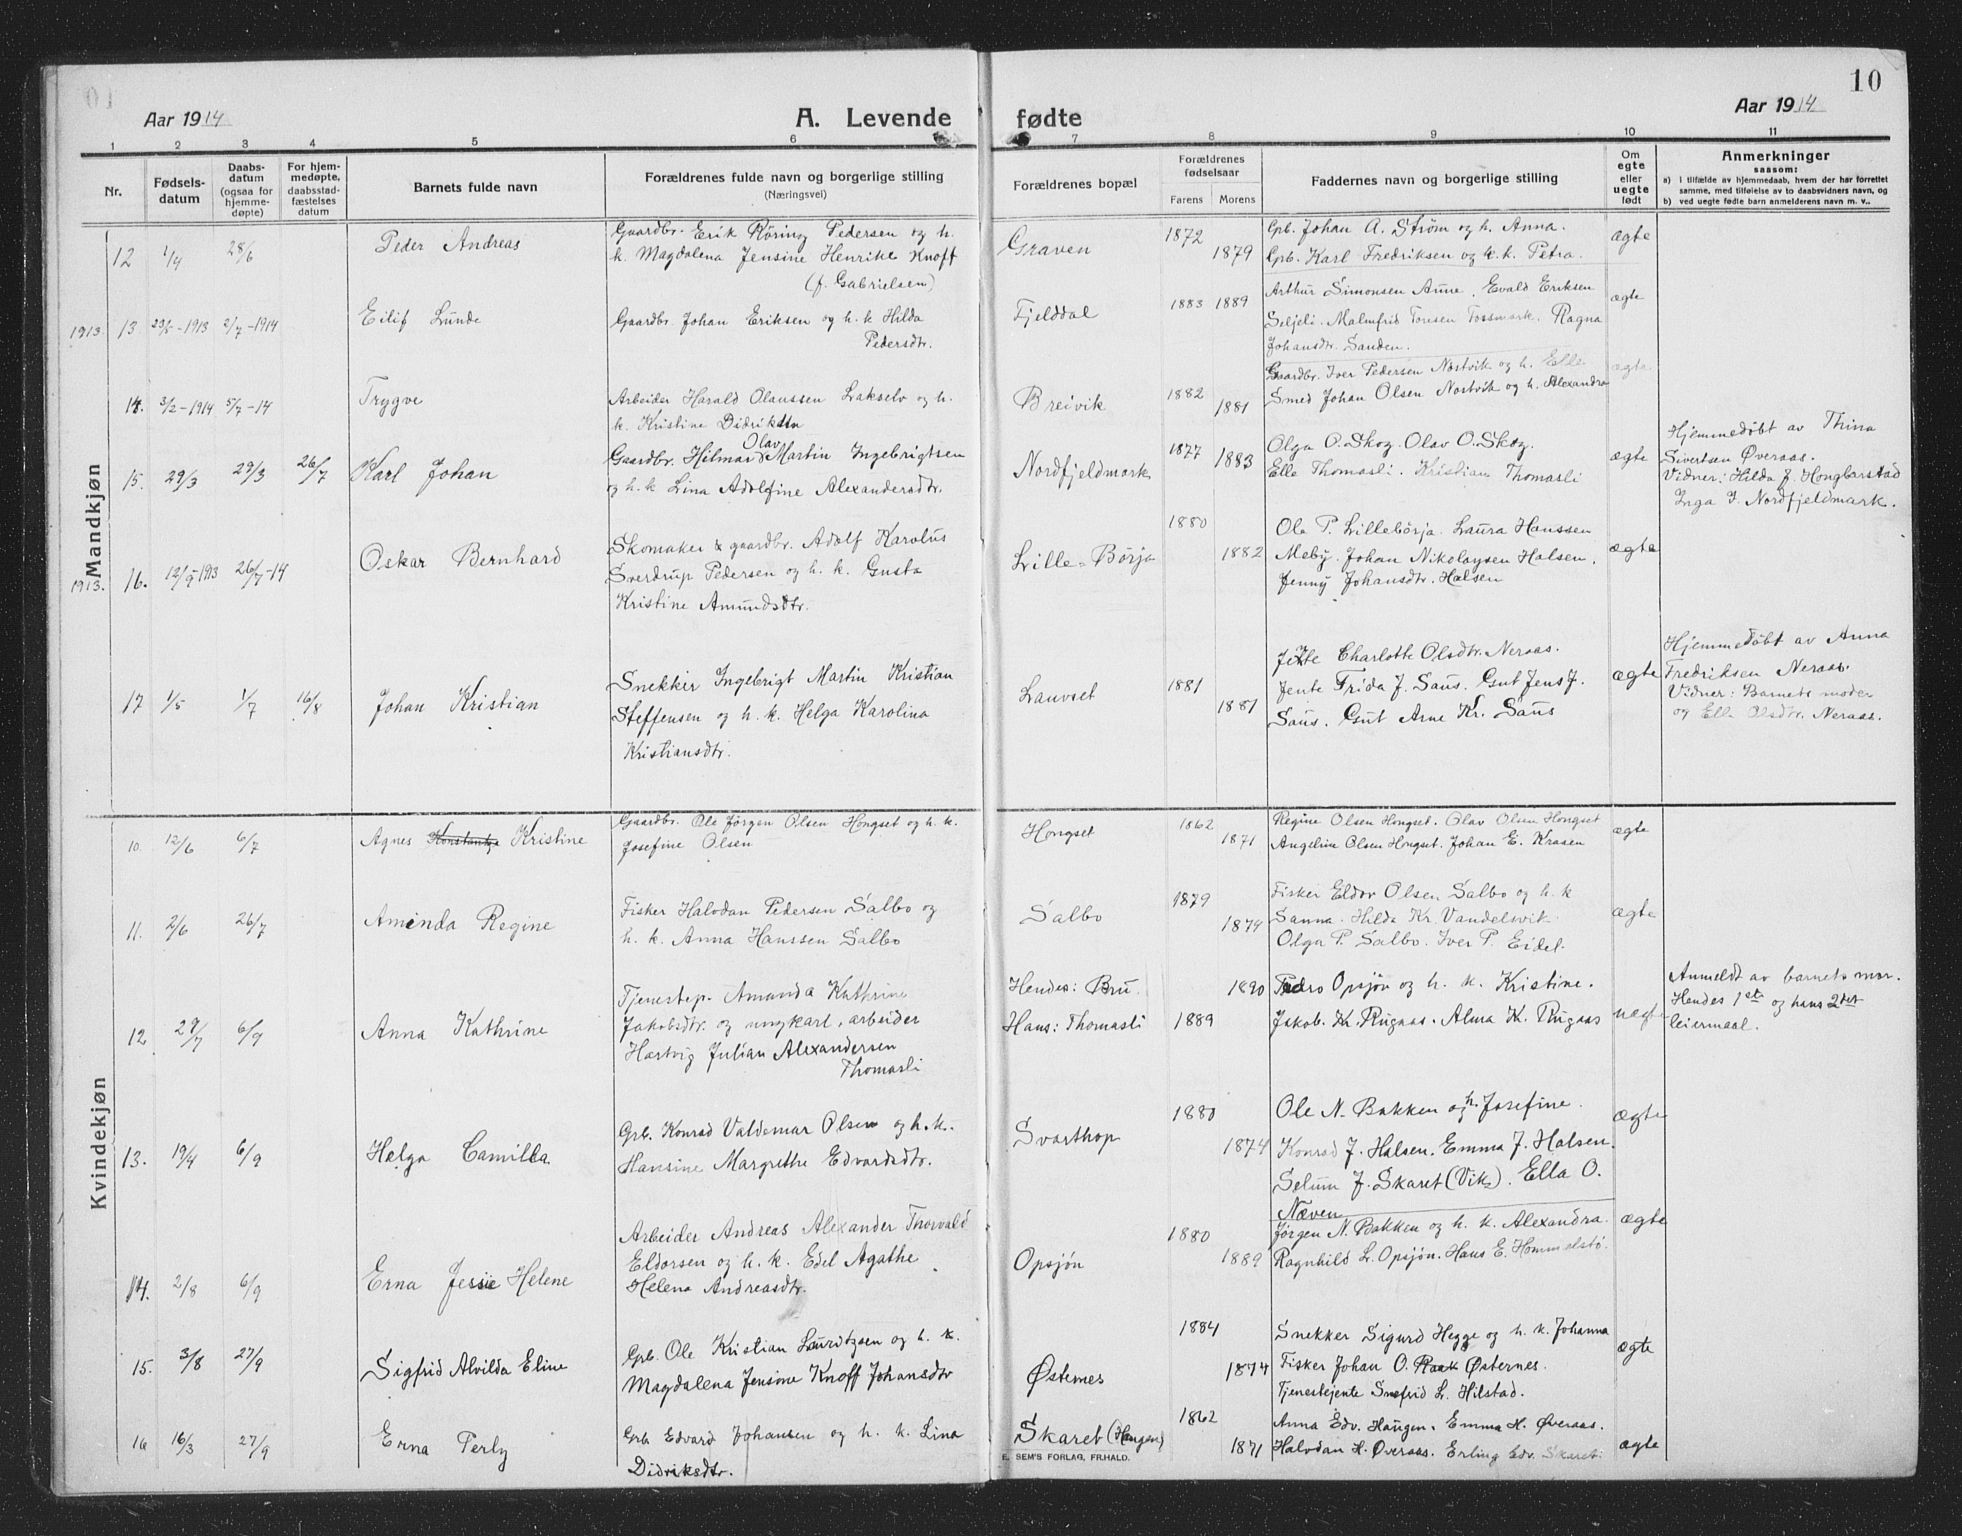 10
Aar 1914
A. Levende fødte
Aar 1914
1 2 3 4 5 6 7 8 9 10 11
Nr.
Fødsels-
datum
Daabs-
datum
(ogsaa for
hjemme-
døpte)
For hjem-
medøpte,
daabsstad-
fæstelses
datum
Barnets fulde navn
Forældrenes fulde navn og borgerlige stilling
(Næringsvei)
Forældrenes bopæl
Forældrenes
fødselsaar
Farens Morens
Faddernes navn og borgerlige stilling
Om
egte
eller
uegte
født
Anmerkninger
saasom:
a) i tilfælde av hjemmedaab, hvem der har forrettet
samme, med tilføielse av to daabsvidners navn, og
b) ved uegte fødte barn anmelderens navn m. v..
Mandkjøn
12 1/4 28/6 Peder Andreas
Gaardbr. Erik Röring Pedersen og h.
k. Magdalena Jensine Henrike Knoff
(f. Gabrielsen)
Graven 1872 1879
Gpb. Johan A. Strøm og h. Anna.
Gpb. Karl Fredriksen og k. k. Petra.
ægte
1913 13 29/5-1913 2/7-1914 Eilif Lunde
Gaardbr. Johan Eriksen og h. k Hilda
Pedersdtr.
Fjelddal 1883 1889
Arthur Simonsen Aune, Evald Eriksen
Seljeli. Malmfrid Toresen Fossmark. Ragna
Johansdtr. Sanden.
ægte
14. 3/2-1914 5/7-14 Trygve
Arbeider Harald Olaussen Lakselv og h.
k. Kristine Didriksen
Breivik 1882 1881
Gaardbr. Iver Pedersen Næstvik og h. Elle
Smed Johan Olsen Nostvik og h. Alexandra
ægte
15. 29/3 29/3 26/7 Karl Johan
Gaardbr. Hilmar Olav Martin Ingebrigtsen
og h. k Lina Adolfine Alexandersdtr.
Nordfjeldmark 1877 1883
Olga O. Skog. Olav O. Skog.
Elle Thomasli. Kristian Thomasli
ægte
Hjemmedøbt av Thina
Sivertsen Øveraas.
Vidner: Hilda J. Hongbarstad
Inga I. Nordfjeldmark.
1913. 16. 12/9-1913 26/7-14 Oskar Bernhard
Skomaker & gaardbr. Adolf Karolus
Sverdrup Pedersen og h. k. Gusta
Kristine Amundsdtr.
Lille-Børja 1880 1882
Ola P. Lillebörja. Laura Hanssen
Meby. Johan Nikolaysen Halsen.
Jenny Johansdtr. Halsen
ægte
17 1/5 1/7 16/8 Johan Kristian
Snekker Ingebrigt Martin Kristian
Steffensen og h. k. Helga Karolina
Kristiansdtr.
Lauvset 1881 1881
Charlotte Olsdtr. Neraas.
Jente Frida J. Saus. Gut Jens J.
Saus. Gut Arne Kr. Saus
ægte
Hjemmedøbt av Anna
Fredriksen Neraas.
Vidner: Barnets moder
og Elle Olsdtr. Neraas.
Kvindekjøn
10. 12/6 6/7 Agnes Konstantza Kristine
Gaardbr. Ole Jörgen Olsen Hongset og h. k.
Josefine Olsen
Hongset 1862 1871
Regine Olsen Hongset. Olav Olsen Hongset
Angeline Olsen Hongset. Johan E. Krasen
ægte
11. 2/6 26/7 Aminda Regine
Fisker Halvdan Pedersen Salbo og
h. k. Anna Hanssen Salbo
Salbo 1879 1879
Fisker Eldor Olsen Salbo og h. k
Sanna. Hilda Kr. Vandelsvik.
Olga P. Salbo. Iver P. Eidel.
ægte
12 29/7 6/9 Anna Kathrine
Tjenestep. Amanda Kathrine
Jakobsdtr. og ungkarl, arbeider
Hartvig Julian Alexandersen
Thomasli
Hendes: Bru.
Hans: Thomasli
1889 1890
Pedro Opsjøn og h. k. Kristine.
Jakob. K. Rugaas. Alma K. Rugaas
uægte
Anmeldt av barnets mor.
Hendes 1ste og hans 2det
leiermaal.
13. 19/4 6/9 Helga Camilla
Gpb. Konrad Valdemar Olsen og h. k.
Hansine Margrethe Edvardsdtr.
Svarthop 1880 1874
Ole N. Bakken og h. Josefine.
Konrad J. Halsen. Emma J. Halsen.
Selum J. Skaret (Vik). Ella O.
Næven
ægte
14. 2/8 6/9 Erna Jessie Helene
Arbeider Andreas Alexander Thorvald
Eldorsen og h. k. Edel Agathe
Helena Andreasdtr.
Opsjön 1880 1889
Jørgen N. Bakken og h. k. Alexandra.
Ragnhild L. Opsjön. Hans E. Hommelstø.
ægte
15. 3/8 27/9 Sigfrid Alvilda Eline
Gpb. Ole Kristian Lauritzsen og h. k.
Magdalena Jensine Knoff Johansdtr
Østernes 1884 1874
Snekker Sigurd Hegge og h. k. Johanna
Fisker Johan O. Østernes.
Tjenestejente Snefrid L. Hilstad.
ægte
16 16/3 27/9 Erna Perly
Gpb. Edvard Johansen og h. k. Lina
Didriksdtr.
Skaret (Haugen) 1862 1871
Anna Edv. Haugen. Emma H. Øveraas.
Halvdan H. Øveraas. Erling Edv. Skaret.
ægte
E. SEM'S FORLAG, FR.HALD.